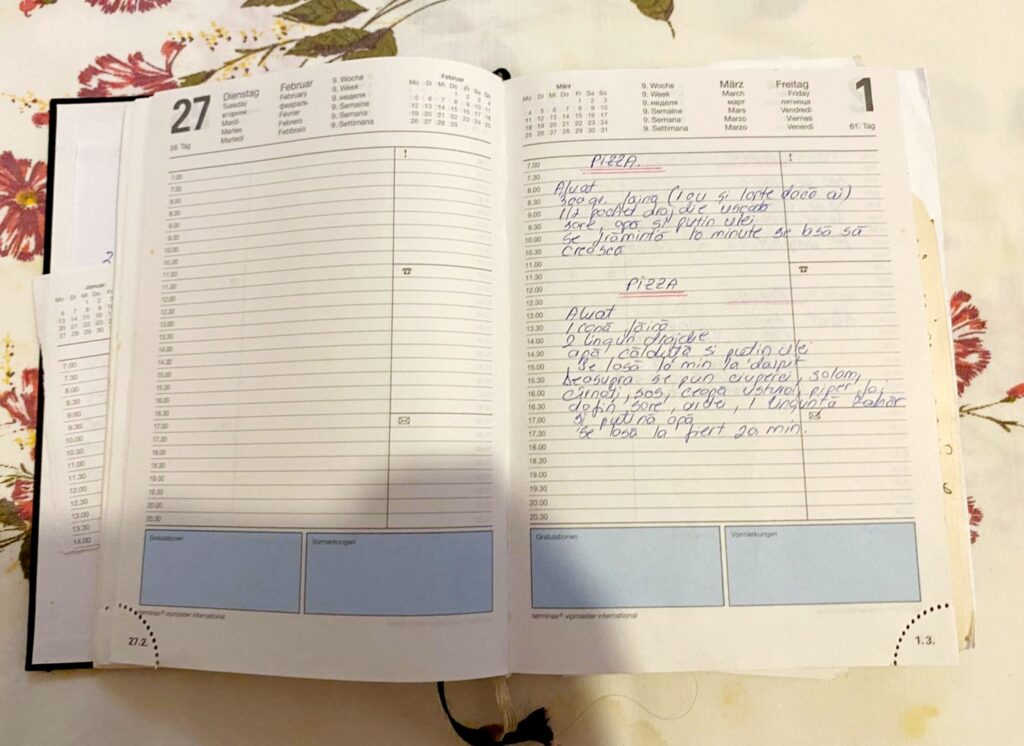 27
Dienstag
Tuesday
вторник
Mardi
Martes
Martedi
58. Tag
Februar
February
февраль
Février
Febrero
Febbraio
9. Woche
9. Week
9. неделя
9. Semaine
9. Semana
9. Settimana
Februar
Mo Di Mi Do Fr Sa So
1 2 3 4
5 6 7 8 9 10 11
12 13 14 15 16 17 18
19 20 21 22 23 24 25
26 27 28 29
!
7.00
7.30
8.00
8.30
9.00
9.30
10.00
10.30
11.00
11.30
12.00
12.30
13.00
13.30
14.00
14.30
15.00
15.30
16.00
16.30
17.00
17.30
18.00
18.30
19.00
19.30
20.00
20.30
Gratulationen
Vormerkungen
terminax® vipmaster international
27.2.
Januar
Mo Di Mi Do
7.00
7.30
8.00
8.30
9.00
9.30
10.00
10.30
11.00
11.30
12.00
12.30
13.00
13.30
14.00
März
Mo Di Mi Do Fr Sa So
1 2 3
4 5 6 7 8 9 10
11 12 13 14 15 16 17
18 19 20 21 22 23 24
25 26 27 28 29 30 31
9. Woche
9. Week
9. неделя
9. Semaine
9. Semana
9. Settimana
März
March
март
Mars
Marzo
Marzo
Freitag
Friday
пятница
Vendredi
Viernes
Venerdi
1
61. Tag
!
7.00
7.30
8.00
8.30
9.00
9.30
10.00
10.30
11.00
11.30
12.00
12.30
13.00
13.30
14.00
14.30
15.00
15.30
16.00
16.30
17.00
17.30
18.00
18.30
19.00
19.30
20.00
20.30
PIZZA
Aluat
300 gr. făină (1 ou și lapte dacă ai)
1/2 pachet drojdie uscată
sare, apă și puțin ulei
Se frămîntă 10 minute se lasă să
crească
PIZZA
Aluat
1 cană făină
2 linguri drojdie
apă călduță și puțin ulei
Se lasă 10 min la dospit
Deasupra se pun ciuperci, salam,
cîrnați, sos, ceapă usturoi, piper
dafin, sare, ardei, 1 linguriță zahăr
și puțină apă
Se lasă la fiert 20 min.
Gratulationen
Vormerkungen
terminax® vipmaster international
1.3.